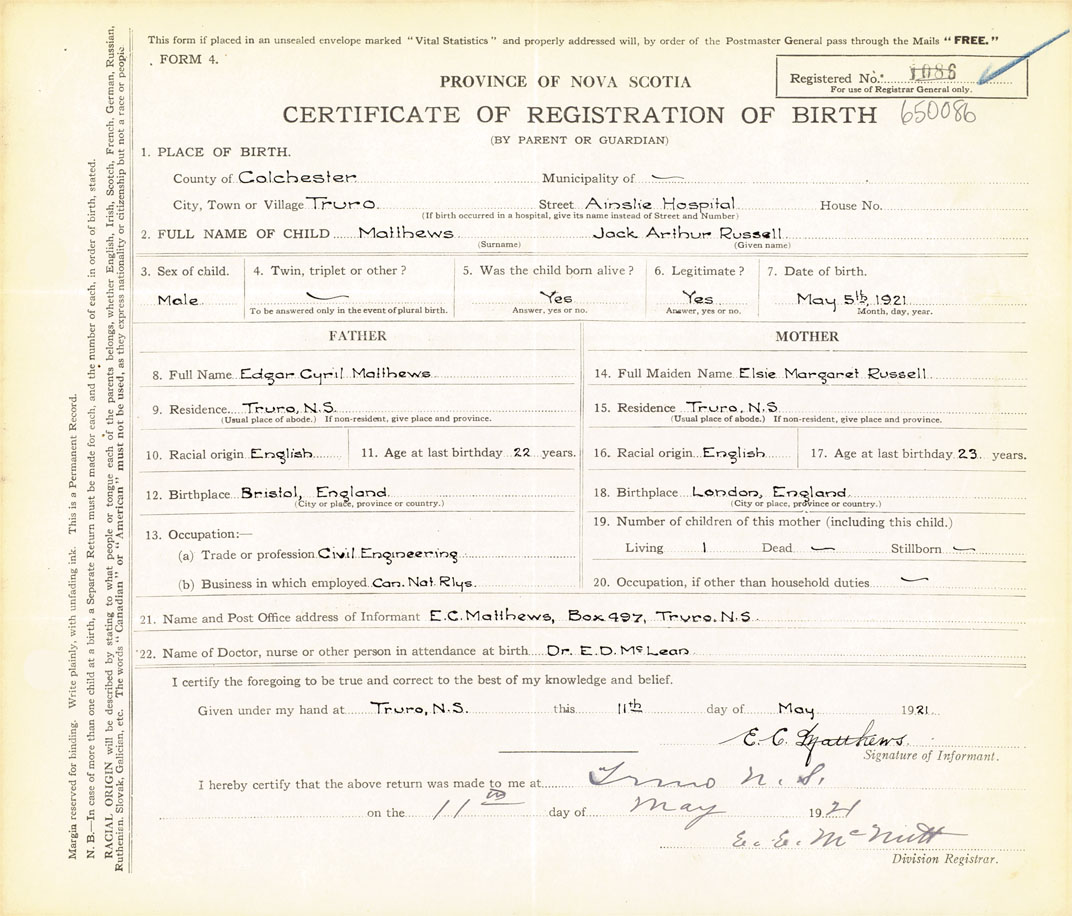 This form if placed in an unsealed envelope marked "Vital Statistics" and properly addressed will, by order of the Postmaster General pass through the Mails "FREE."
FORM 4.
Registered No. 1086
For use of Registrar General only.
PROVINCE OF NOVA SCOTIA
CERTIFICATE OF REGISTRATION OF BIRTH 650086
(BY PARENT OR GUARDIAN)
1. PLACE OF BIRTH.
County of Colchester Municipality of —
City, Town or Village Truro Street Ainslie Hospital House No.
(If birth occurred in a hospital, give its name instead of Street and Number)
2. FULL NAME OF CHILD Matthews Jack Arthur Russell
(Surname) (Given name)
3. Sex of child. 4. Twin, triplet or other? 5. Was the child born alive? 6. Legitimate? 7. Date of birth.
Male — Yes Yes May 5th, 1921
To be answered only in the event of plural birth. Answer, yes or no. Answer, yes or no. Month, day, year.
FATHER MOTHER
8. Full Name Edgar Cyril Matthews 14. Full Maiden Name Elsie Margaret Russell
9. Residence Truro, N.S. 15. Residence Truro, N.S.
(Usual place of abode.) If non-resident, give place and province. (Usual place of abode.) If non-resident, give place and province.
10. Racial origin English 11. Age at last birthday 22 years. 16. Racial origin English 17. Age at last birthday 23 years.
12. Birthplace Bristol, England 18. Birthplace London, England
(City or place, province or country.) (City or place, province or country.)
13. Occupation:— 19. Number of children of this mother (including this child.)
(a) Trade or profession Civil Engineering Living 1 Dead — Stillborn —
(b) Business in which employed Can. Nat. Rlys. 20. Occupation, if other than household duties —
21. Name and Post Office address of Informant E.C. Matthews, Box 497, Truro. N.S
22. Name of Doctor, nurse or other person in attendance at birth Dr. E.D. McLean
I certify the foregoing to be true and correct to the best of my knowledge and belief.
Given under my hand at Truro, N.S. this 11th day of May 1921.
E. C. Matthews.
Signature of Informant.
I hereby certify that the above return was made to me at Truro N. S.
on the 11th day of May 1921
E. E. McNutt
Division Registrar.
Margin reserved for binding. Write plainly, with unfading ink. This is a Permanent Record.
N. B.—In case of more than one child at a birth, a Separate Return must be made for each, and the number of each, in order of birth, stated.
RACIAL ORIGIN will be described by stating to what people or tongue each of the parents belongs, whether English, Irish, Scotch, French, German, Russian,
Ruthenian, Slovak, Galician, etc. The words "Canadian" or "American" must not be used, as they express nationality or citizenship but not a race or people